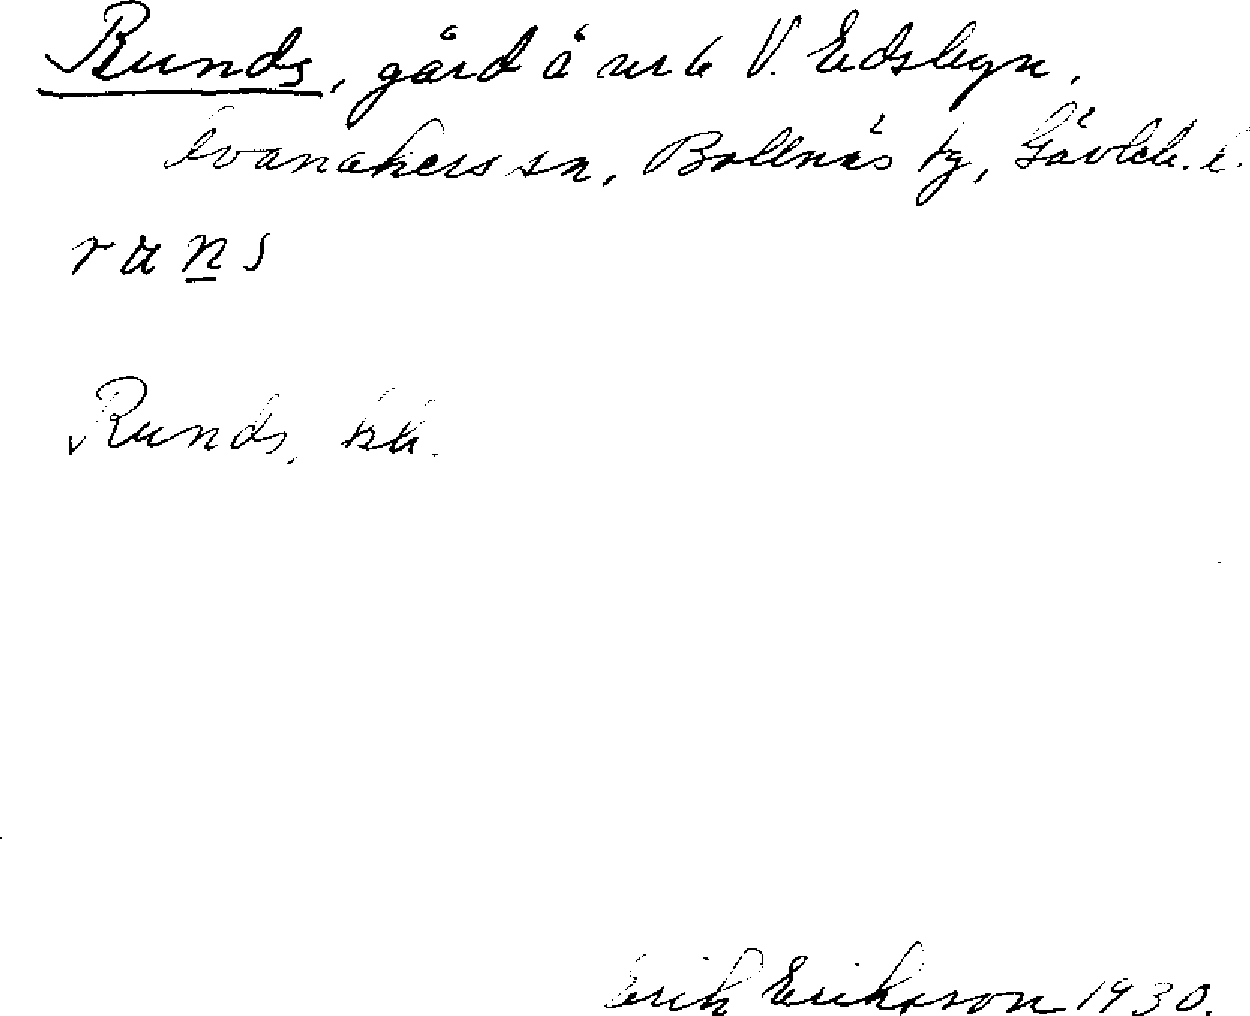 Runds, gård å nr 6 V. Edsbyn,
Ovanåkers sn, Bollnäs tg, Gävleb. l.
r u n s
Runds, kb.
Erik Eriksson 1930.